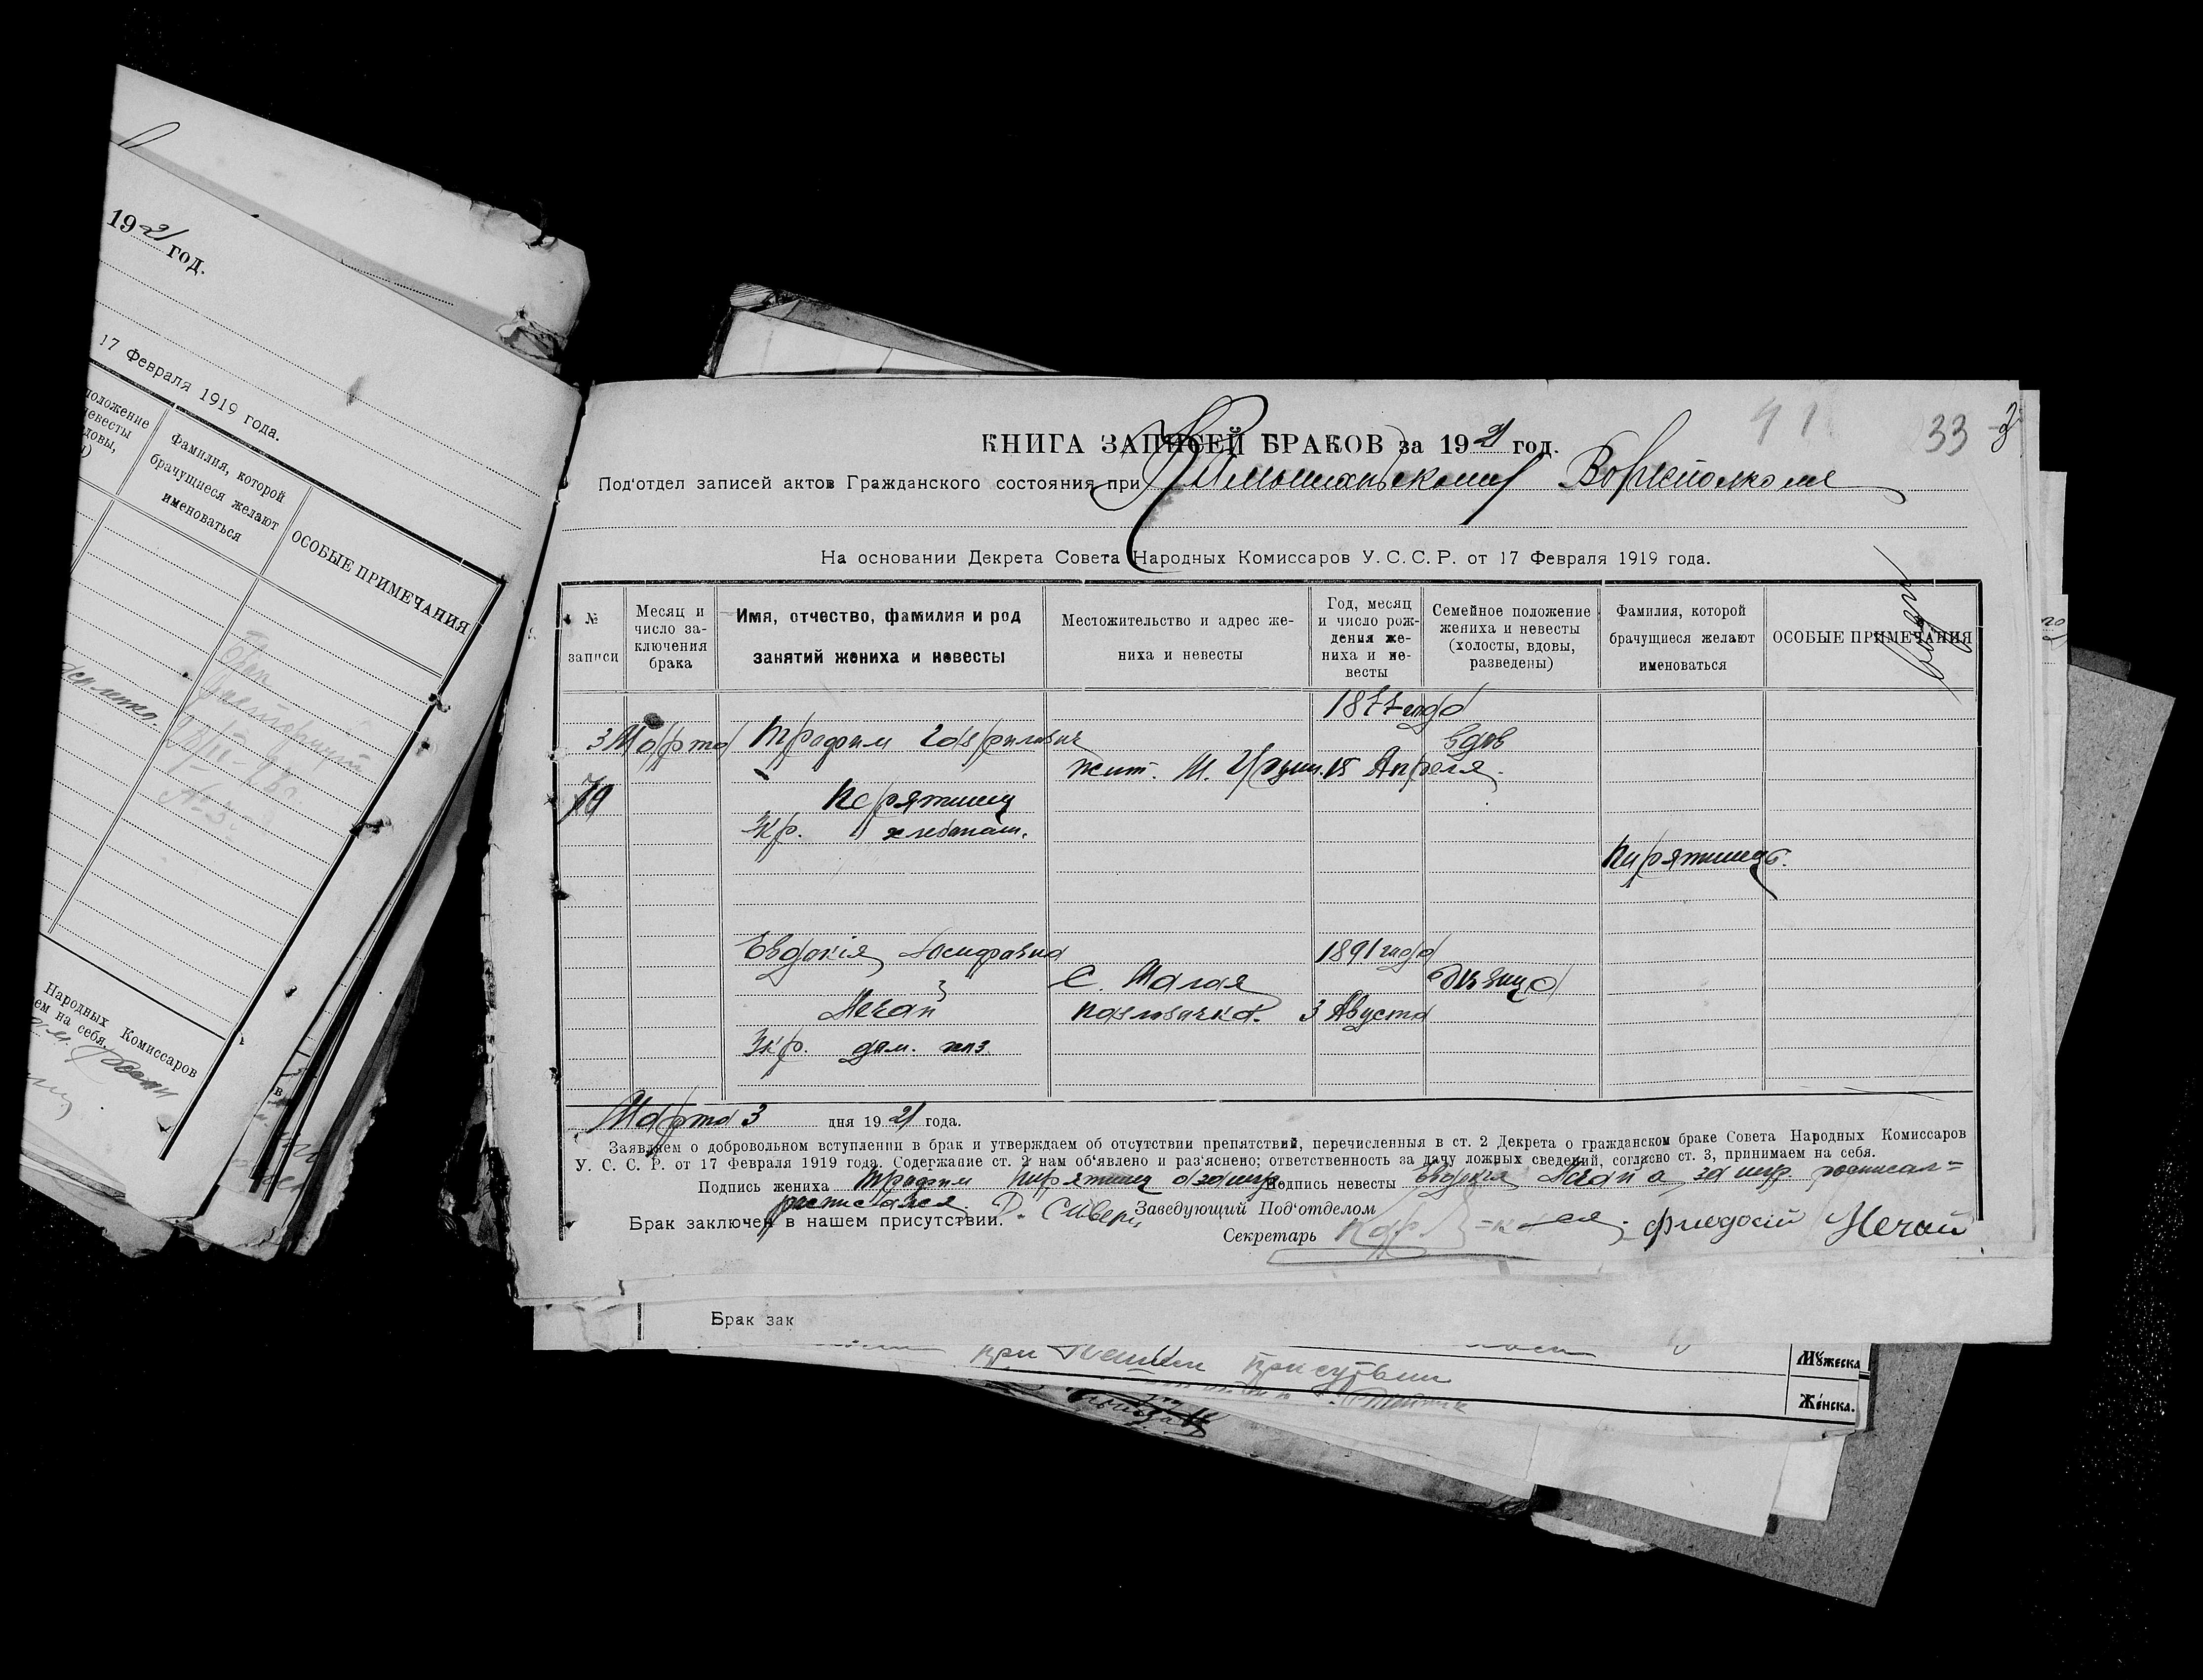 1921 год.
17 Февраля 1919 года.
положение
невесты
вдовы,
Фамилия, которой
брачущиеся желают
именоваться
ОСОБЫЕ ПРИМЕЧАНИЯ
Брак
№ 3.
Народных Комиссаров
ем на себя.
33
КНИГА ЗАПИСЕЙ БРАКОВ за 1921 год.
Под'отдел записей актов Гражданского состояния при Волисполкоме
На основании Декрета Совета Народных Комиссаров У. С. С. Р. от 17 Февраля 1919 года.
№
записи
Месяц и
число за-
ключения
брака
Имя, отчество, фамилия и род
занятий жениха и невесты
Местожительство и адрес же-
ниха и невесты
Год, месяц
и число рож-
дения же-
ниха и не-
весты
Семейное положение
жениха и невесты
(холосты, вдовы,
разведены)
Фамилия, которой
брачущиеся желают
именоваться
ОСОБЫЕ ПРИМЕЧАНИЯ
1877 года
3 Марта Трафим Гаврилович вдов
жит. 15 Апреля.
Пирятинец
Зкр. хлебопаш.
Пирятинец.
Евдокія 1891 года
С. Малая девица
Нечай Павловичка. 3 Августа
Зкр. дом. хоз.
Марта 3 дня 1921 года.
Заявляем о добровольном вступлении в брак и утверждаем об отсутствии препятствий, перечисленныя в ст. 2 Декрета о гражданском браке Совета Народных Комиссаров
У. С. С. Р. от 17 Февраля 1919 года. Содержание ст. 2 нам об'явлено и раз'яснено; ответственность за дачу ложных сведений, согласно ст. 3, принимаем на себя.
Подпись жениха Трафим Пирятинец Подпись невесты Евдокія Нечай а за нея росписал=
росписался Заведующий Под'отделом
Брак заключен в нашем присутствии.
Секретарь =ся Нечай
Брак зак
при присутвии
Мужеска
Женска.